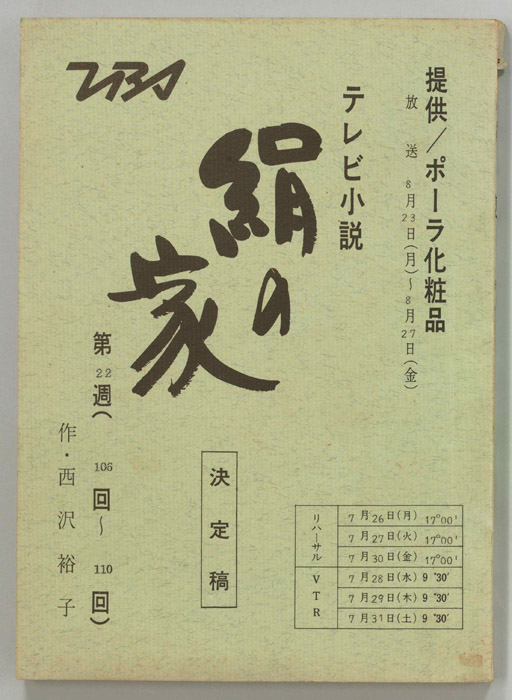 TBS
提供/ポーラ化粧品
放送 8月23日(月)~8月27日(金)
テレビ小説
絹の家
第22週(106回~110回)
作・西沢裕子
決定稿
リハーサル
7月26日(月) 17°00'
7月27日(火) 17°00'
7月30日(金) 17°00'
VTR
7月28日(水) 9°30'
7月29日(木) 9°30'
7月31日(土) 9°30'